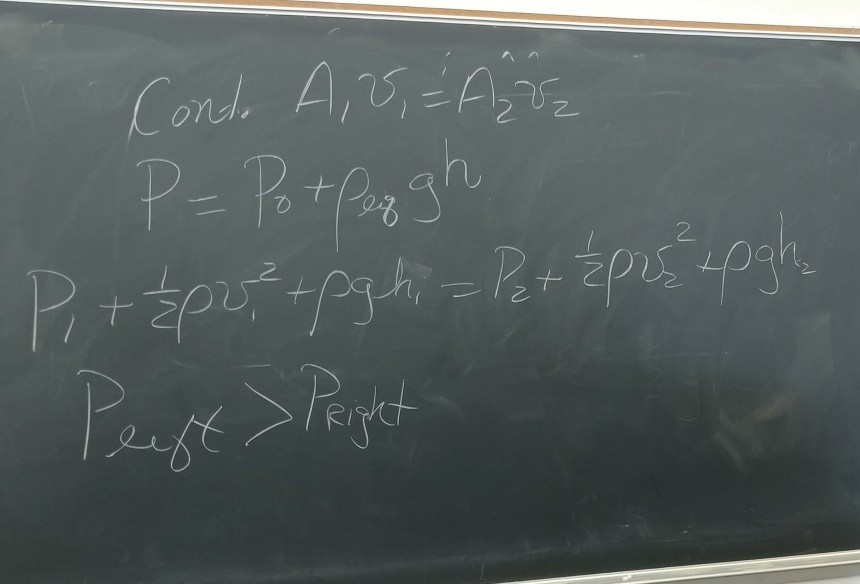 Cont. A₁v₁ = A₂v₂
P = P₀ + ρ_liq gh
P₁ + ½ρv₁² + ρgh₁ = P₂ + ½ρv₂² + ρgh₂
P_left > P_Right